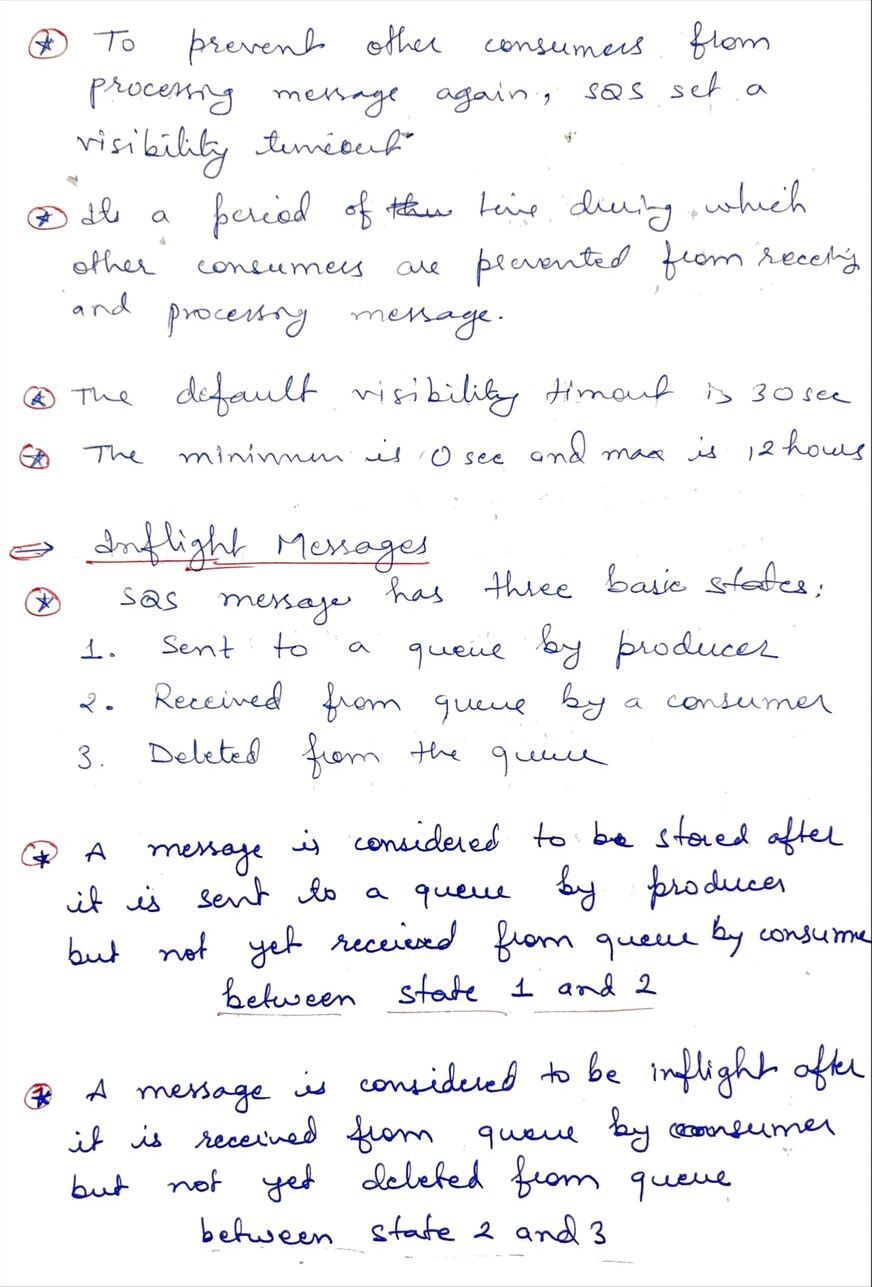 To prevent other consumers from
processng message again, SQS set a
visibility timeout
Its a period of time during which
other consumers are prevented from receivig
and processng message.
The default visibility timout is 30 sec
The minimum is 0 sec and max is 12 hours
⇒ Inflight Messages
SQS message has three basic states:
1. Sent to a queue by producer
2. Received from queue by a consumer
3. Deleted from the queue
A message is considered to be stored after
it is sent to a queue by producer
but not yet received from queue by consume
between state 1 and 2
A message is considered to be inflight after
it is received from queue by consumer
but not yet deleted from queue
between state 2 and 3